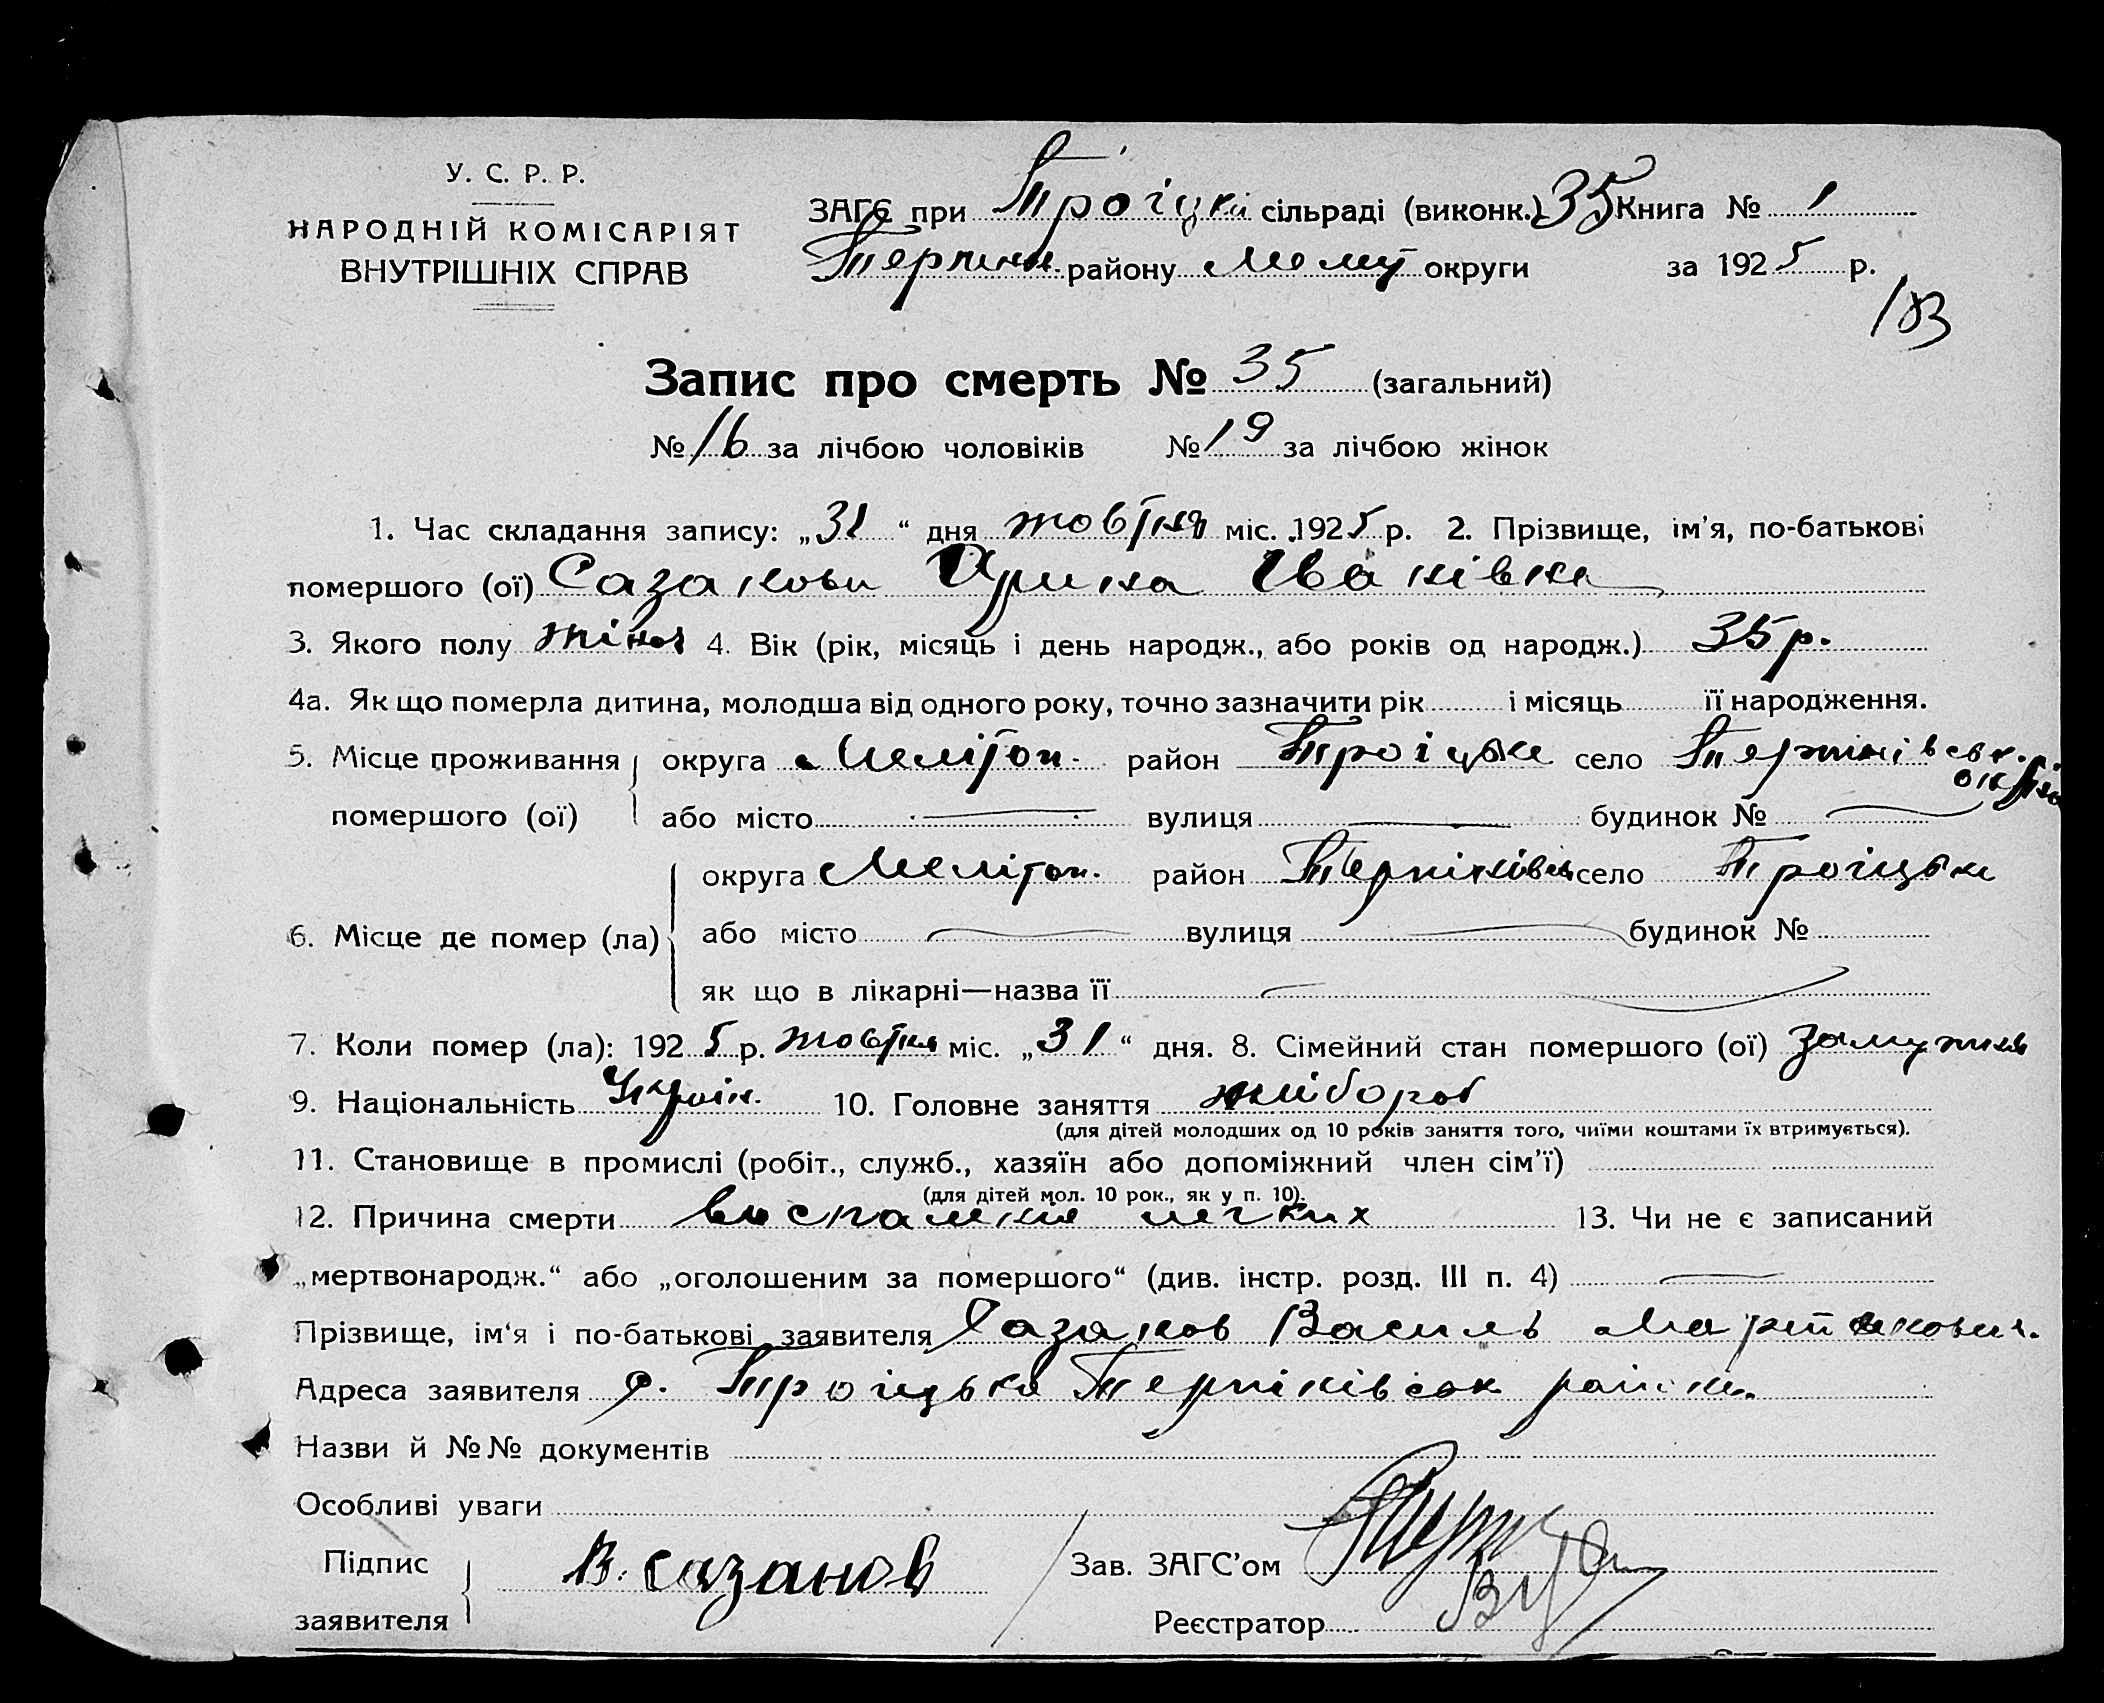 У. С. Р. Р.
НАРОДНІЙ КОМІСАРІЯТ
ВНУТРІШНІХ СПРАВ
ЗАГС при Троіцкій сільраді (виконк.) 35 Книга № 1
Терпінн. району Меліт округи за 1925 р.
183
Запис про смерть № 35 (загальний)
№ 16 за лічбою чоловіків № 19 за лічбою жінок
1. Час складання запису: „31“ дня жовтня міс. 1925 р. 2. Прізвище, ім'я, по-батькові
помершого (ої) Сазанова Орина Іванівна
3. Якого полу жіноч 4. Вік (рік, місяць і день народж., або років од народж.) 35 р.
4а. Як що померла дитина, молодша від одного року, точно зазначити рік і місяць її народження.
5. Місце проживання округа Меліtоп. район Троіцьке село Терпінівськ.
помершого (ої) або місто вулиця будинок №
округа Меліtоп. район Терпінівськ село Троіцьке
6. Місце де помер (ла) або місто вулиця будинок №
як що в лікарні—назва її
7. Коли помер (ла): 1925 р. жовтня міс. „31“ дня. 8. Сімейний стан помершого (ої) замужня
9. Національність Україн. 10. Головне заняття хлібороб
(для дітей молодших од 10 років заняття того, чиїми коштами їх втримується).
11. Становище в промислі (робіт., служб., хазяїн або допоміжний член сім'ї)
(для дітей мол. 10 рок., як у п. 10).
12. Причина смерти воспаленія легких 13. Чи не є записаний
„мертвонародж.“ або „оголошеним за помершого“ (див. інстр. розд. III п. 4)
Прізвище, ім'я і по-батькові заявителя Сазанов Василь Мартинович.
Адреса заявителя с. Троіцьке Терпінівськ району
Назви й №№ документів
Особливі уваги
Підпис
заявителя
В. Сазанов
Зав. ЗАГС'ом
Реєстратор